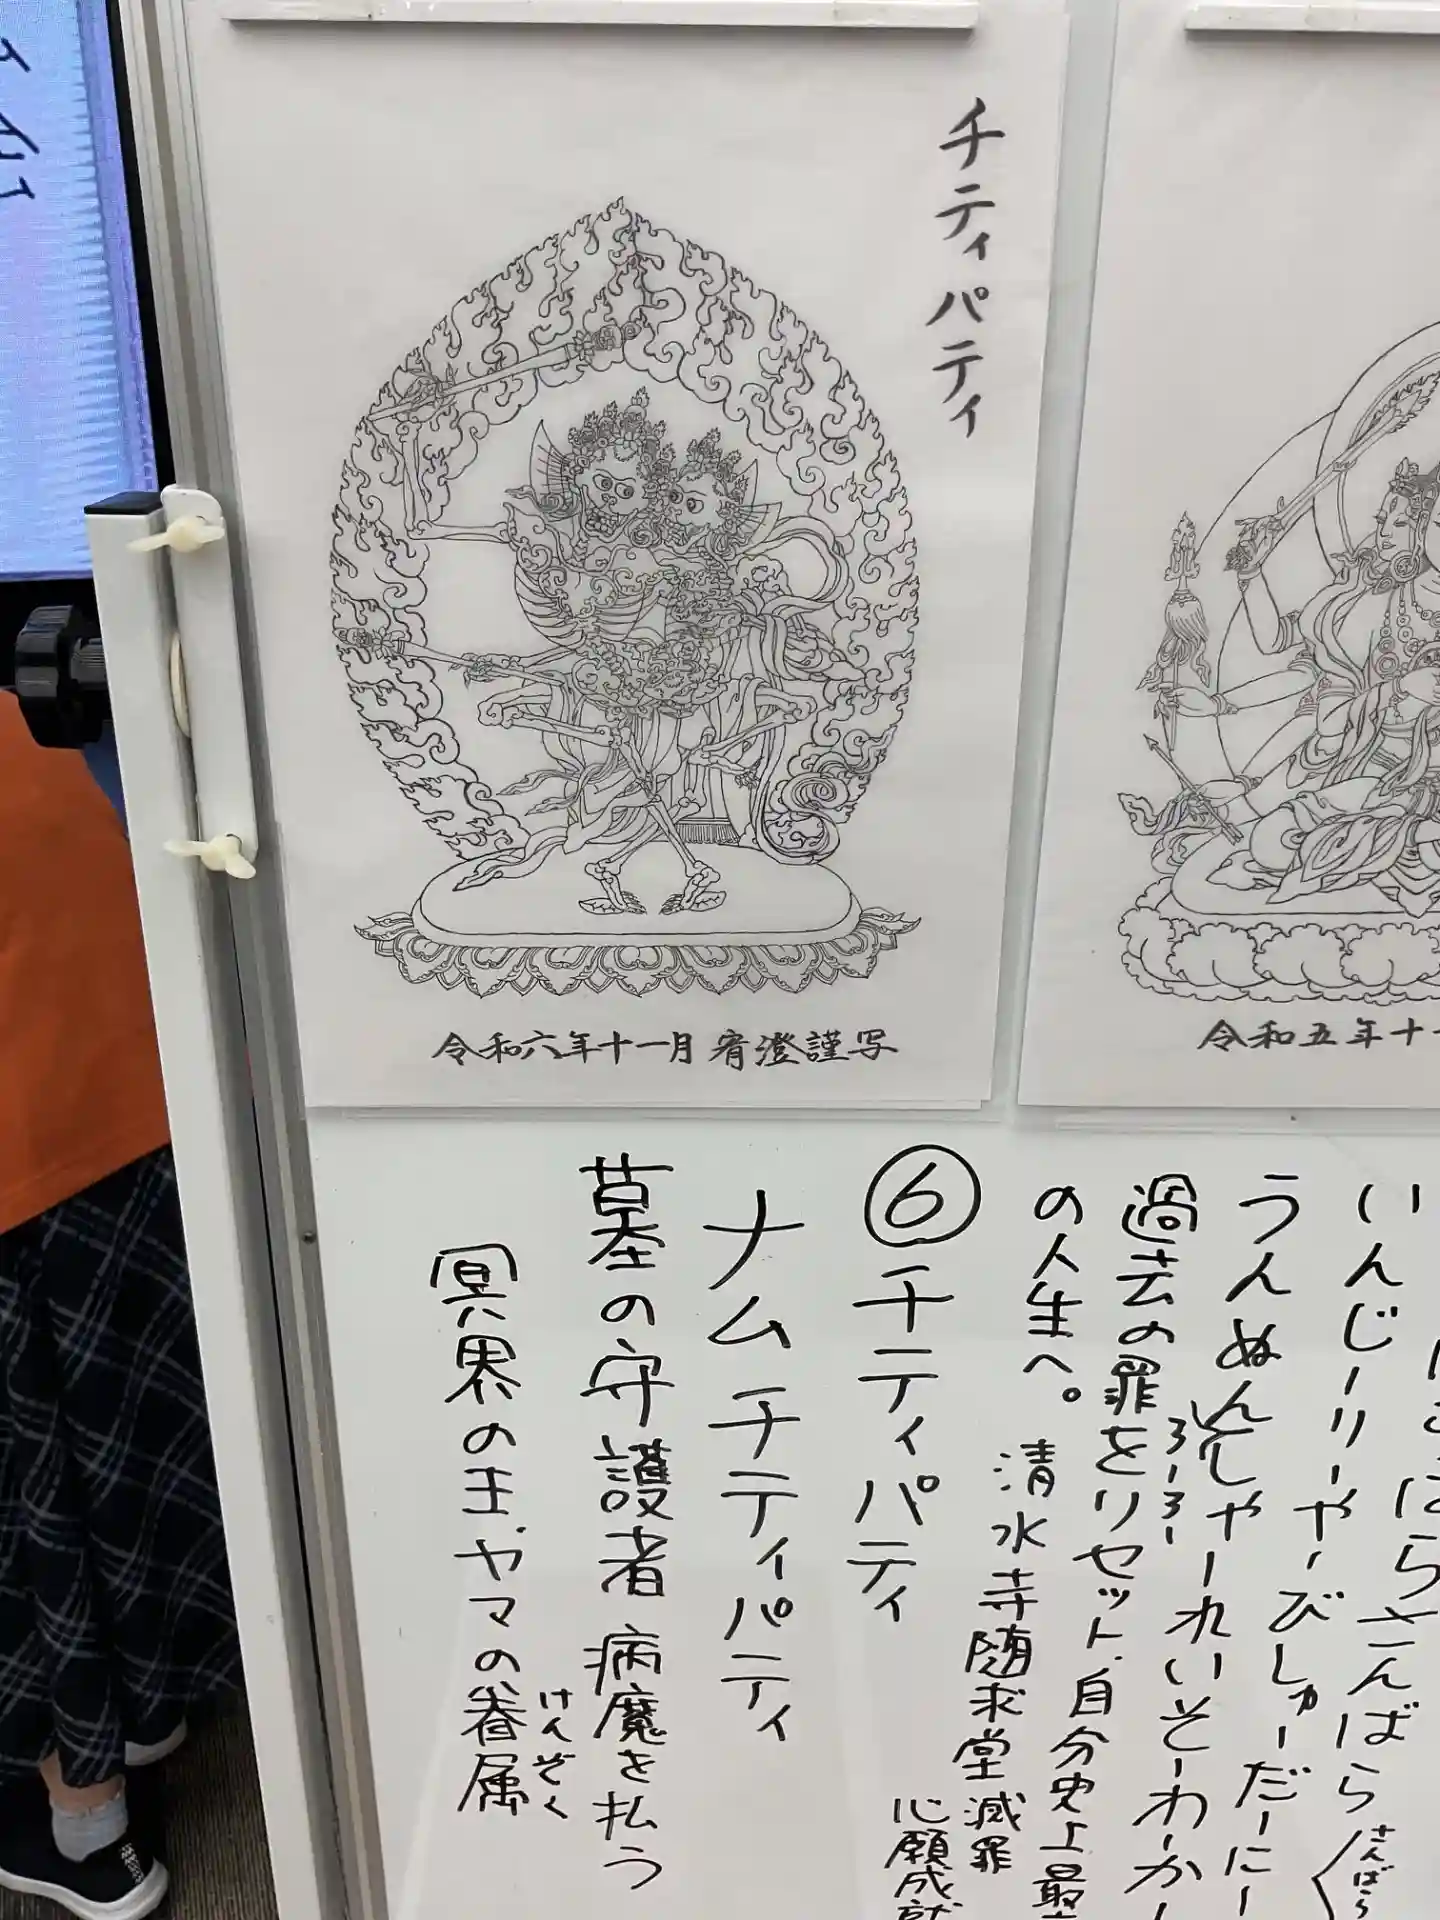 チティパティ
令和六年十一月 宥澄謹写
令和五年十
いんじーりーやーびしゅーだーにー
うんぬんしゃーれいそーわーかー
しろしろー
過去の罪をリセット、自分史上最
の人生へ。 清水寺随求堂 滅罪
心願成就
⑥チティパティ
ナムチティパティ
墓の守護者 病魔を払う
冥界の王、ヤマの眷属
けんぞく